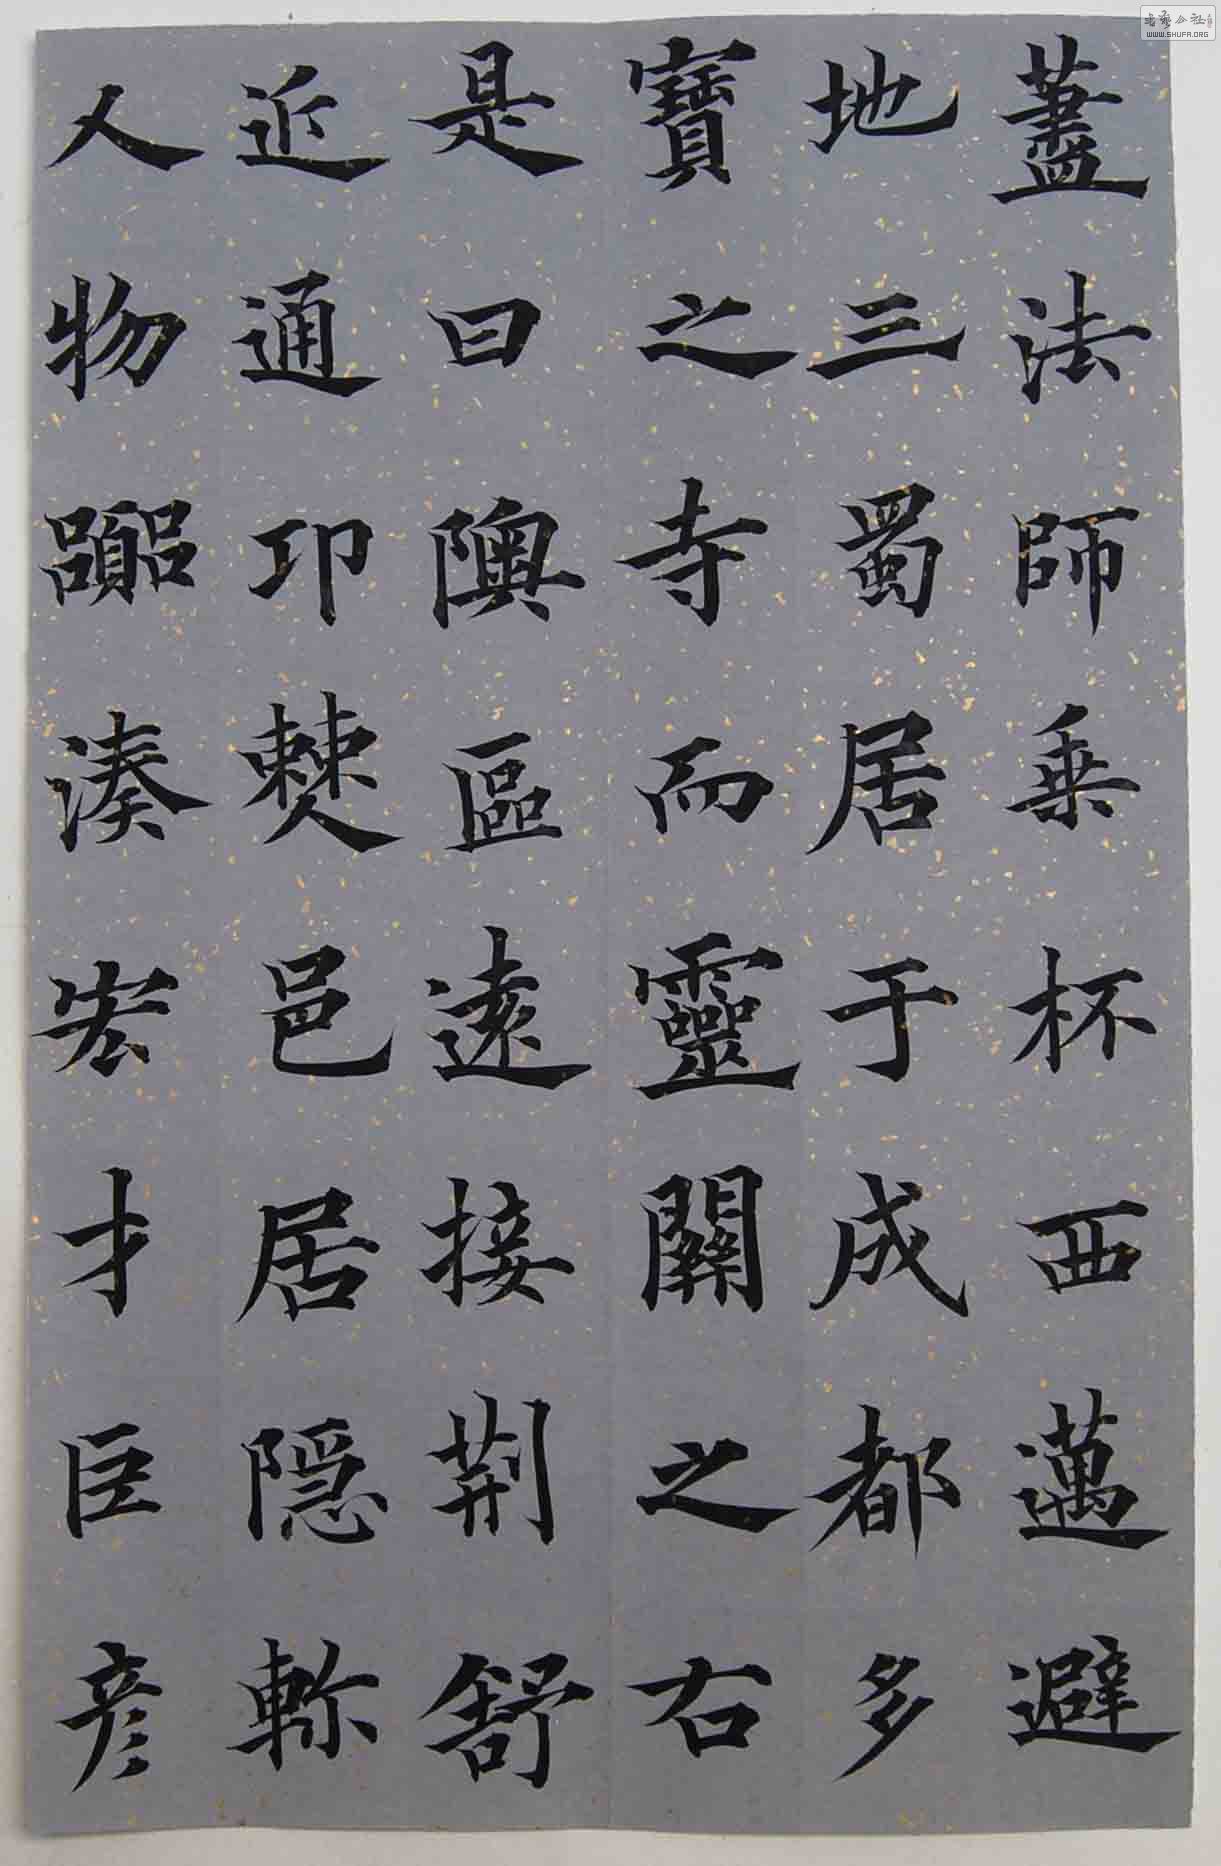 蓋法師乗杯西邁避
地三蜀居于成都多
寶之寺而靈關之右
是曰隩區遠接荆舒
近通邛僰邑居隱軫
人物嚻湊宏才巨彦
WWW.SHUFA.ORG